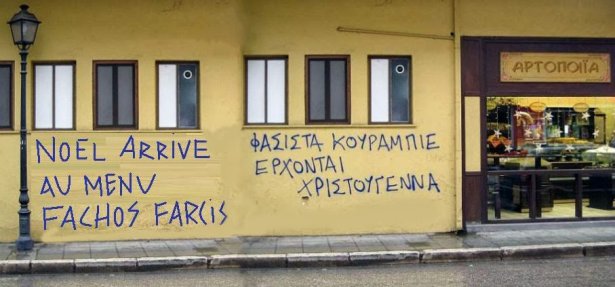 NOEL ARRIVE
AU MENU
FACHOS FARCIS
ΦΑΣΙΣΤΑ ΚΟΥΡΑΜΠΙΕ
ΕΡΧΟΝΤΑΙ
ΧΡΙΣΤΟΥΓΕΝΝΑ
ΑΡΤΟΠΟΙΪΑ